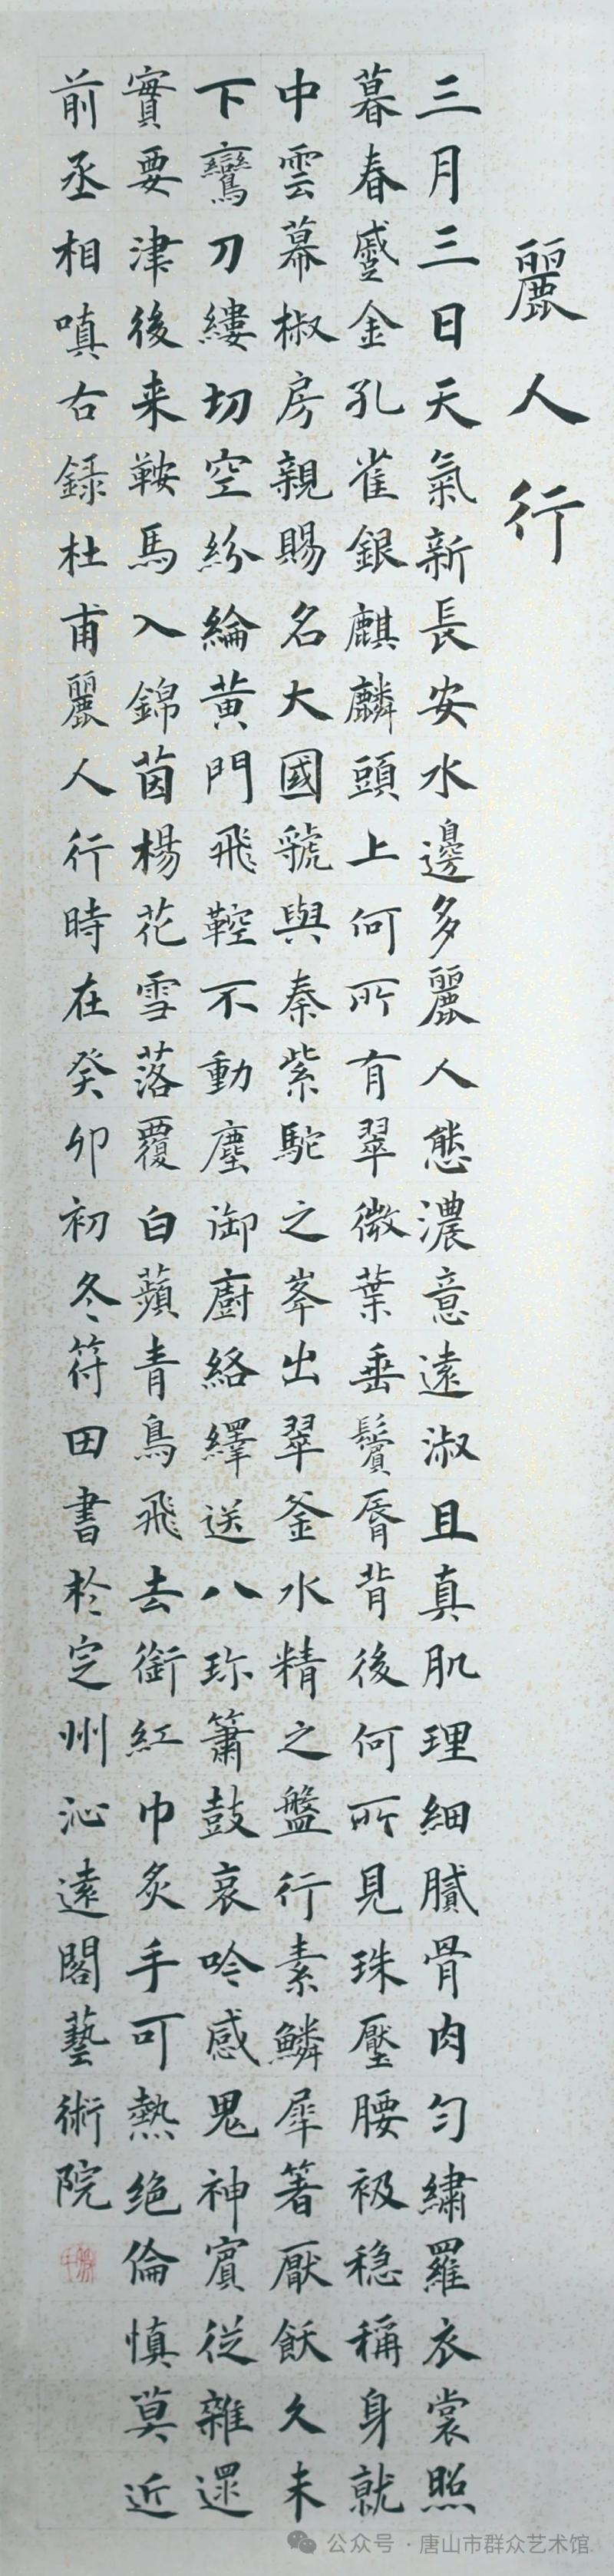 麗人行
三月三日天氣新長安水邊多麗人態濃意遠淑且真肌理細膩骨肉勻繡羅衣裳照
暮春蹙金孔雀銀麒麟頭上何所有翠微葉垂鬢脣背後何所見珠壓腰衱稳稱身就
中雲幕椒房親賜名大國虢與秦紫駝之峯出翠釜水精之盤行素鱗犀箸厭飫久未
下鸞刀縷切空紛綸黄門飛鞚不動塵御廚絡繹送八珎簫鼓哀吟感鬼神賓從雜遝
實要津後来鞍馬入錦茵楊花雪落覆白蘋青鳥飛去銜紅巾炙手可熱絶倫慎莫近
前丞相嗔右録杜甫麗人行時在癸卯初冬符田書於定州沁遠閣藝術院
公众号·唐山市群众艺术馆